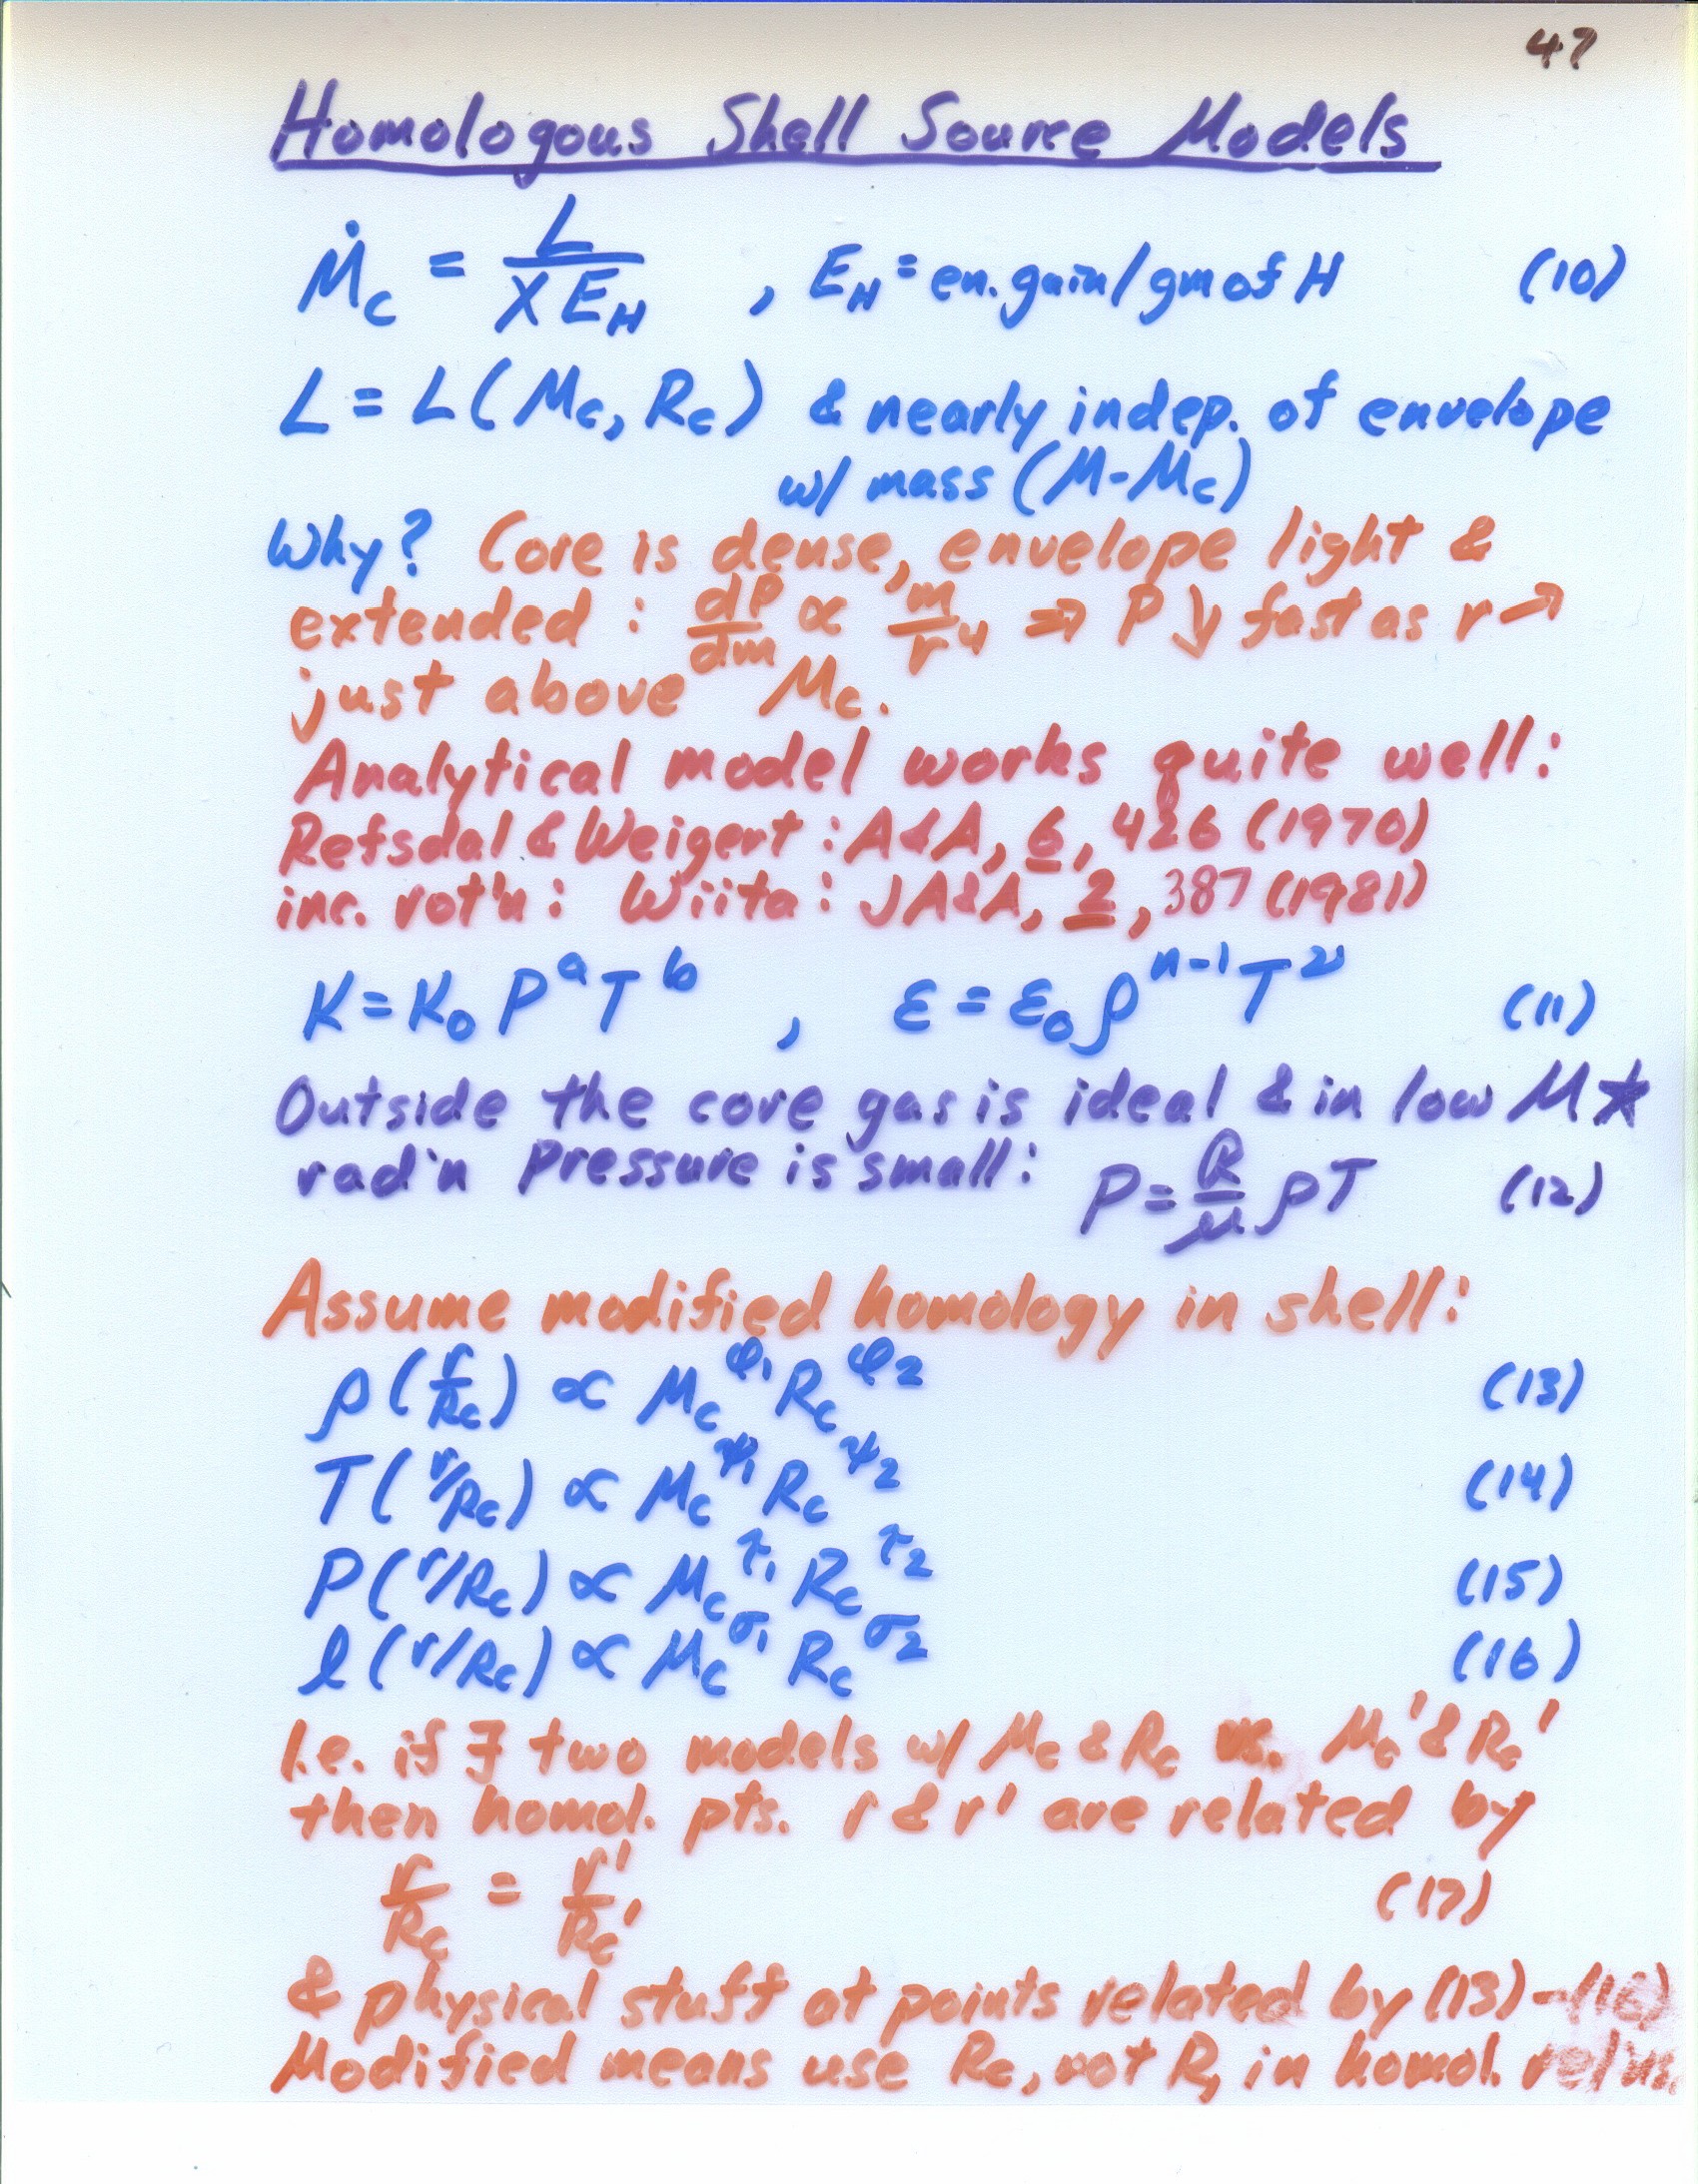 47
Homologous Shell Source Models
Ṁ_c = L / (X E_H) , E_H = en. gain/gm of H (10)
L = L(M_c, R_c) & nearly indep. of envelope
w/ mass (M-M_c)
Why? Core is dense, envelope light &
extended : dP/dm ∝ m/r⁴ ⇒ P ↘ fast as r ↗
just above M_c.
Analytical model works quite well:
Refsdal & Weigert : A&A, 6, 426 (1970)
inc. rot'n : Wiita : JA&A, 2, 387 (1981)
K = K_0 P^a T^b , ε = ε_0 ρ^{n-1} T^ν (11)
Outside the core gas is ideal & in low M★
rad'n Pressure is small: P = R/μ ρT (12)
Assume modified homology in shell:
ρ(r/R_c) ∝ M_c^{φ_1} R_c^{φ_2} (13)
T(r/R_c) ∝ M_c^{ψ_1} R_c^{ψ_2} (14)
P(r/R_c) ∝ M_c^{τ_1} R_c^{τ_2} (15)
l(r/R_c) ∝ M_c^{σ_1} R_c^{σ_2} (16)
I.e. if ∃ two models w/ M_c & R_c vs. M_c' & R_c'
then homol. pts. r & r' are related by
r/R_c = r'/R_c' (17)
& physical stuff at points related by (13)-(16)
Modified means use R_c, not R, in homol. relns.